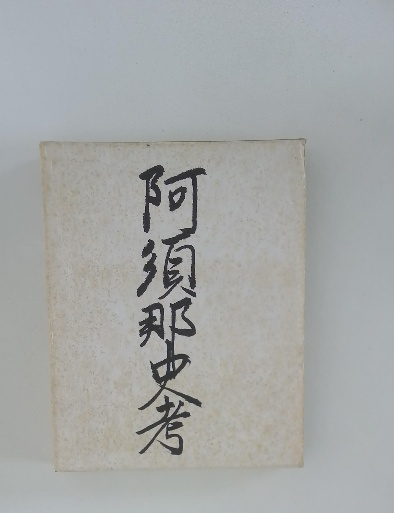 阿須那史考